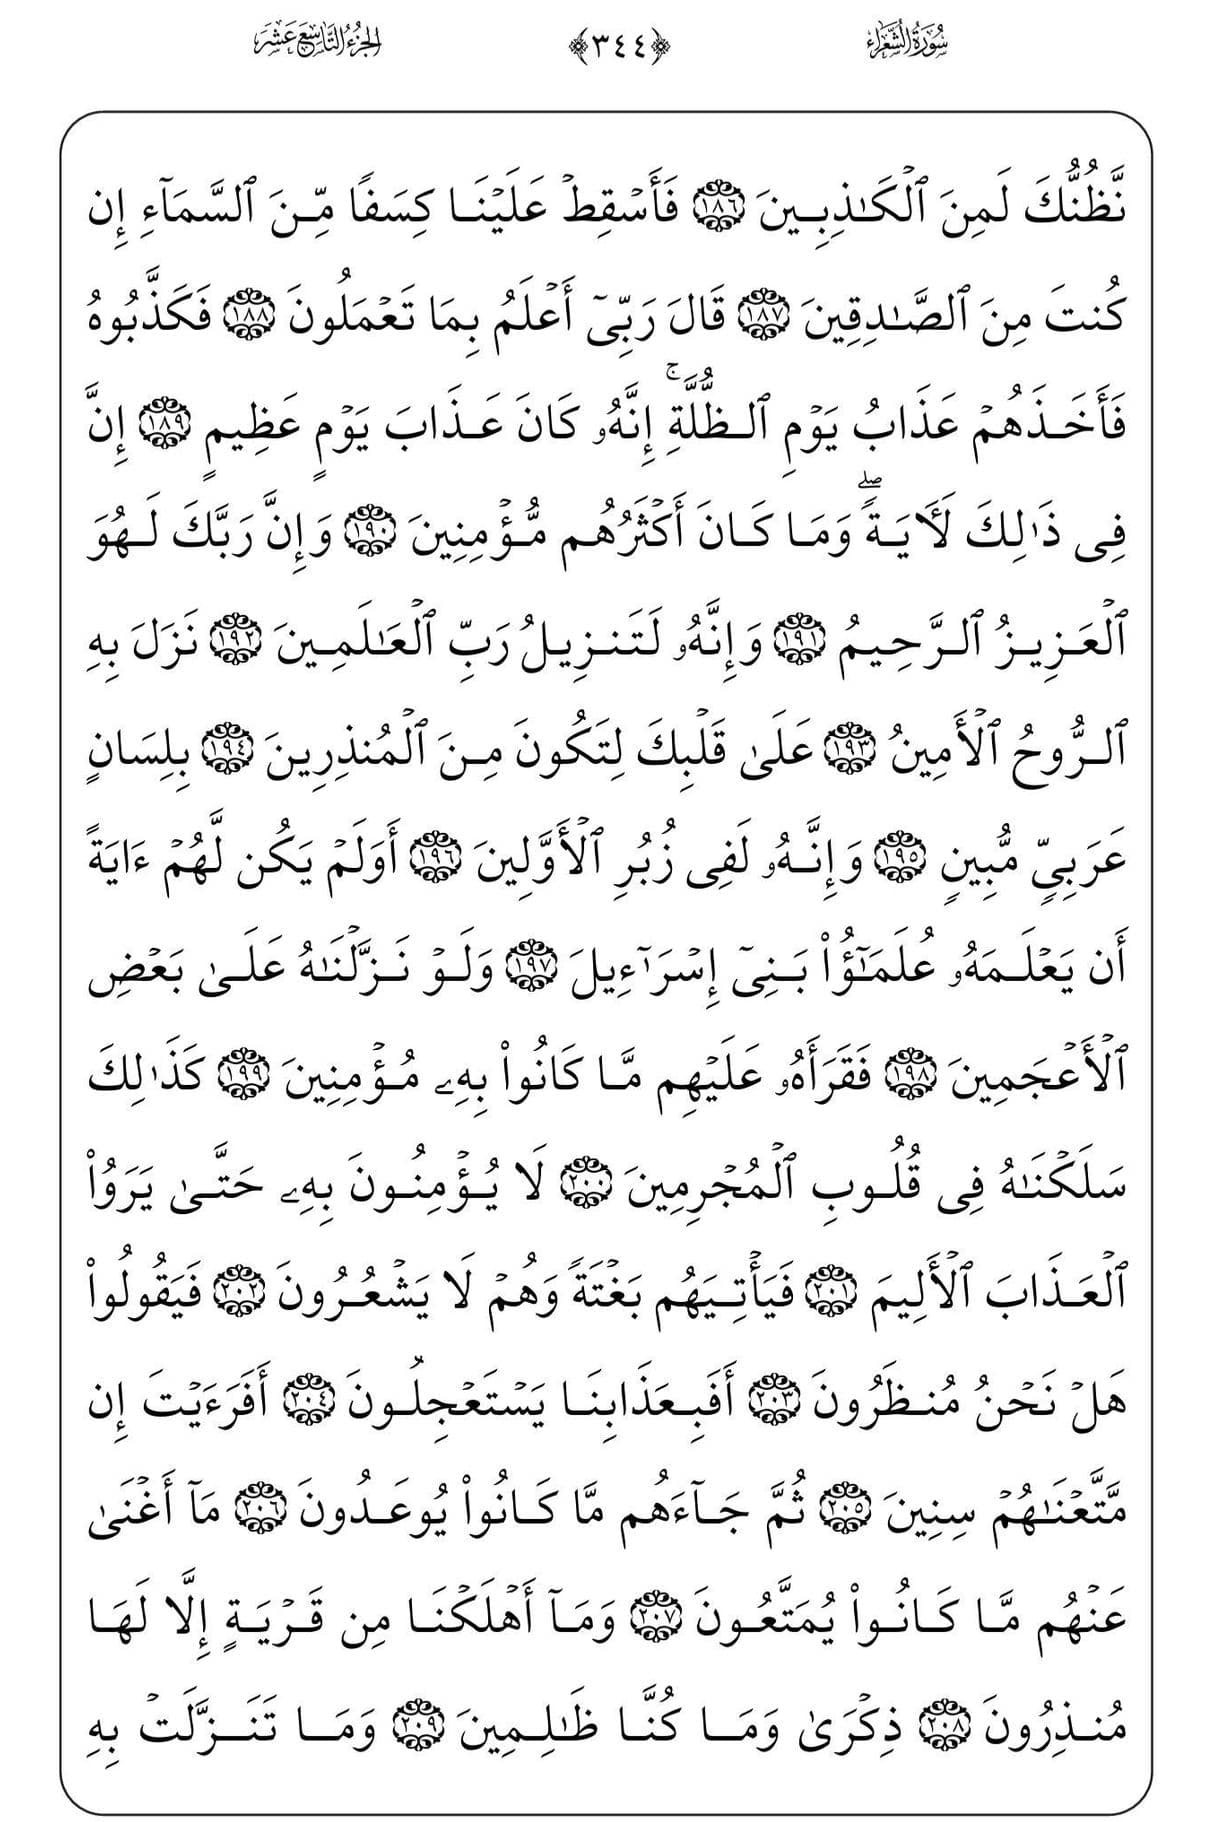 سُورَةُ الشُّعَرَاءِ ٣٤٤ الجُزْءُ التَّاسِعَ عَشَرَ
نَّظُنُّكَ لَمِنَ ٱلْكَـٰذِبِينَ ١٨٦ فَأَسْقِطْ عَلَيْنَا كِسَفًا مِّنَ ٱلسَّمَآءِ إِن
كُنتَ مِنَ ٱلصَّـٰدِقِينَ ١٨٧ قَالَ رَبِّىٓ أَعْلَمُ بِمَا تَعْمَلُونَ ١٨٨ فَكَذَّبُوهُ
فَأَخَذَهُمْ عَذَابُ يَوْمِ ٱلظُّلَّةِ ۚ إِنَّهُۥ كَانَ عَذَابَ يَوْمٍ عَظِيمٍ ١٨٩ إِنَّ
فِى ذَٰلِكَ لَـَٔايَةً ۖ وَمَا كَانَ أَكْثَرُهُم مُّؤْمِنِينَ ١٩٠ وَإِنَّ رَبَّكَ لَهُوَ
ٱلْعَزِيزُ ٱلرَّحِيمُ ١٩١ وَإِنَّهُۥ لَتَنزِيلُ رَبِّ ٱلْعَـٰلَمِينَ ١٩٢ نَزَلَ بِهِ
ٱلرُّوحُ ٱلْأَمِينُ ١٩٣ عَلَىٰ قَلْبِكَ لِتَكُونَ مِنَ ٱلْمُنذِرِينَ ١٩٤ بِلِسَانٍ
عَرَبِىٍّ مُّبِينٍ ١٩٥ وَإِنَّهُۥ لَفِى زُبُرِ ٱلْأَوَّلِينَ ١٩٦ أَوَلَمْ يَكُن لَّهُمْ ءَايَةً
أَن يَعْلَمَهُۥ عُلَمَـٰٓؤُا۟ بَنِىٓ إِسْرَٰٓءِيلَ ١٩٧ وَلَوْ نَزَّلْنَـٰهُ عَلَىٰ بَعْضِ
ٱلْأَعْجَمِينَ ١٩٨ فَقَرَأَهُۥ عَلَيْهِم مَّا كَانُوا۟ بِهِۦ مُؤْمِنِينَ ١٩٩ كَذَٰلِكَ
سَلَكْنَـٰهُ فِى قُلُوبِ ٱلْمُجْرِمِينَ ٢٠٠ لَا يُؤْمِنُونَ بِهِۦ حَتَّىٰ يَرَوُا۟
ٱلْعَذَابَ ٱلْأَلِيمَ ٢٠١ فَيَأْتِيَهُم بَغْتَةً وَهُمْ لَا يَشْعُرُونَ ٢٠٢ فَيَقُولُوا۟
هَلْ نَحْنُ مُنظَرُونَ ٢٠٣ أَفَبِعَذَابِنَا يَسْتَعْجِلُونَ ٢٠٤ أَفَرَءَيْتَ إِن
مَّتَّعْنَـٰهُمْ سِنِينَ ٢٠٥ ثُمَّ جَآءَهُم مَّا كَانُوا۟ يُوعَدُونَ ٢٠٦ مَآ أَغْنَىٰ
عَنْهُم مَّا كَانُوا۟ يُمَتَّعُونَ ٢٠٧ وَمَآ أَهْلَكْنَا مِن قَرْيَةٍ إِلَّا لَهَا
مُنذِرُونَ ٢٠٨ ذِكْرَىٰ وَمَا كُنَّا ظَـٰلِمِينَ ٢٠٩ وَمَا تَنَزَّلَتْ بِهِ